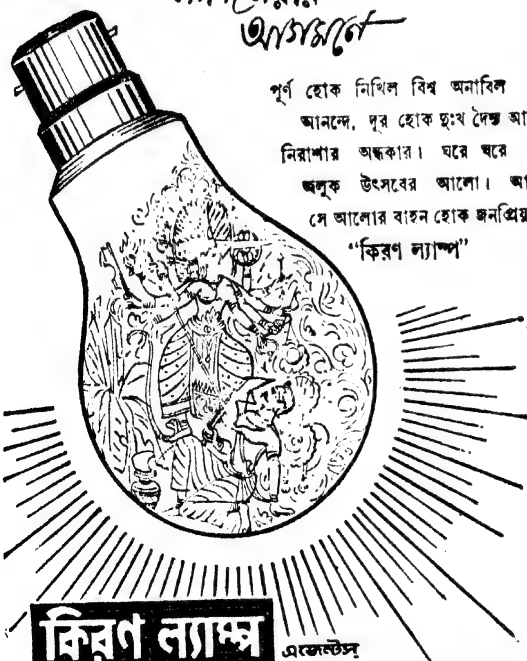 আগমনে
পূর্ণ হোক নিখিল বিশ্ব অনাবিল
আনন্দে, দূর হোক দুঃখ দৈন্য আ
নিরাশার অন্ধকার। ঘরে ঘরে
জ্বলুক উৎসবের আলো। আ
সে আলোর বাহন হোক জনপ্রিয়
“কিরণ ল্যাম্প”
কিরণ ল্যাম্প এজেন্টস্